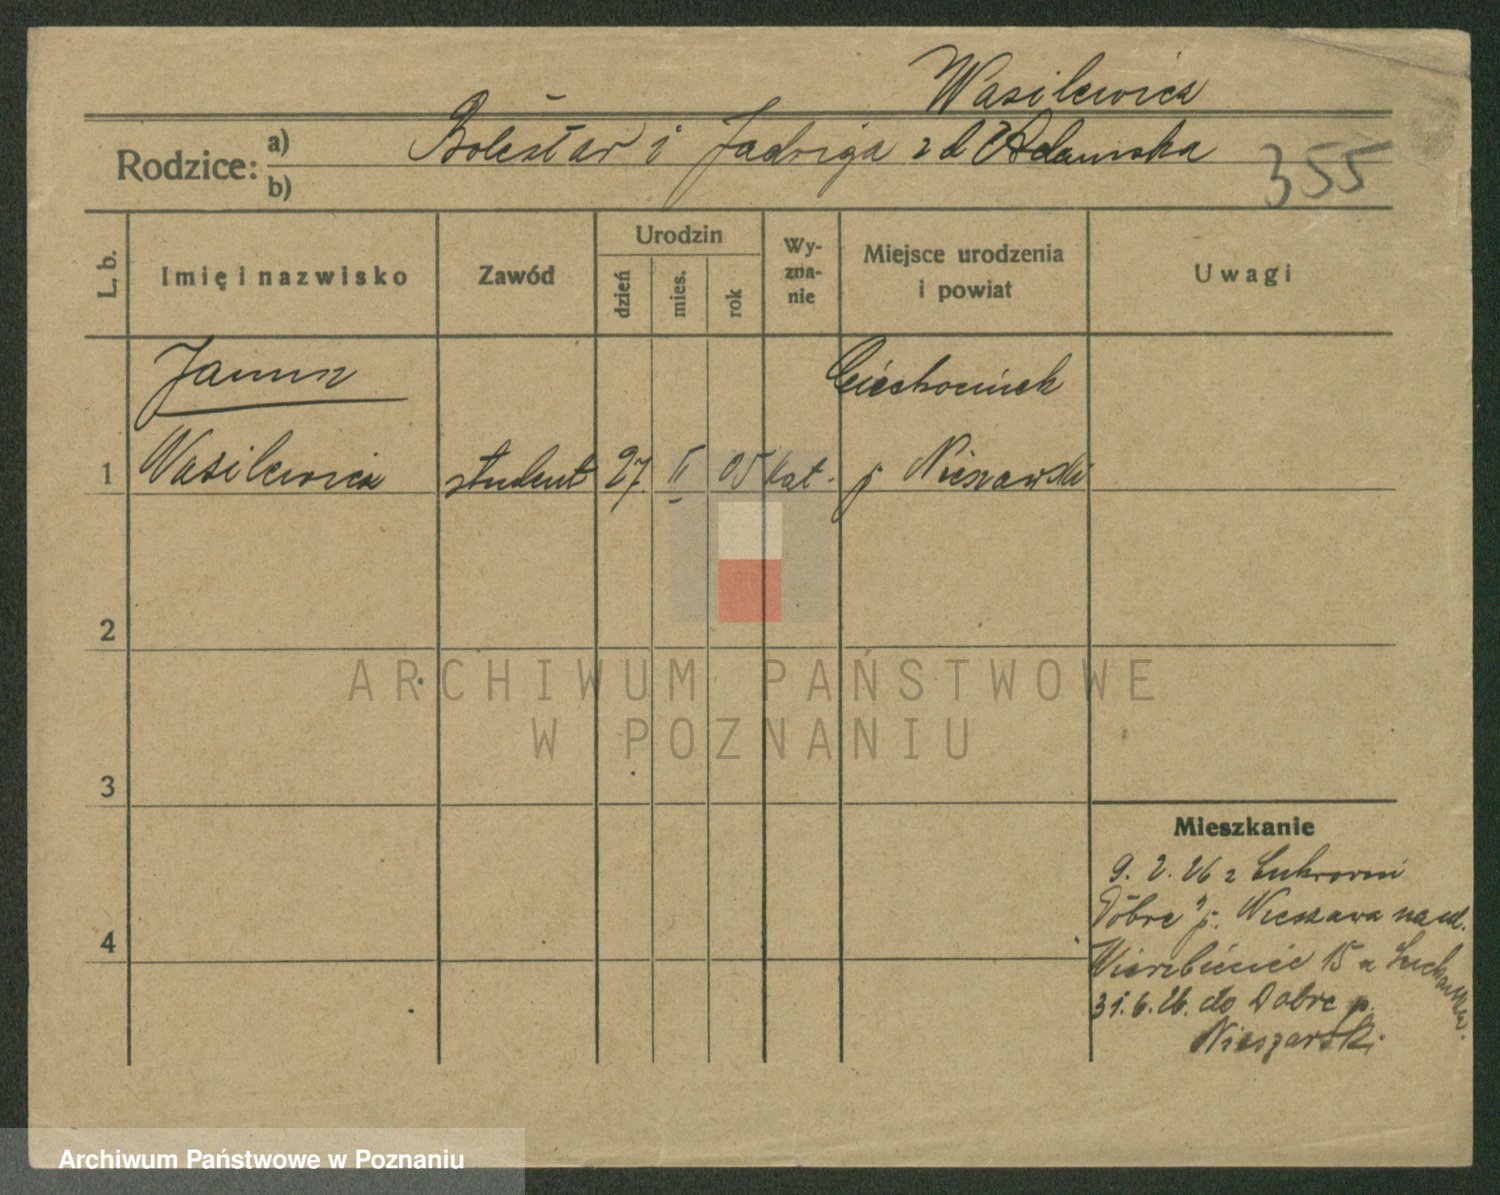 Wasilewicz
Rodzice: a) Bolesław i Jadwiga z d Adamska
b)
355
L. b.
Imię i nazwisko
Zawód
Urodzin
dzień
mies.
rok
Wy-
zna-
nie
Miejsce urodzenia
i powiat
Uwagi
Janusz
Ciechocinek
1 Wasilewicz student 27. II 05 kat. p Nieszawski
2
ARCHIWUM PAŃSTWOWE
W POZNANIU
3
Mieszkanie
9. 2. 26 z Cukrowni
Dobre" p. Nieszawa na ul.
4
Wierzbięcice 15 a
31. 6. 26. do Dobre p.
Nieszawski.
Archiwum Państwowe w Poznaniu